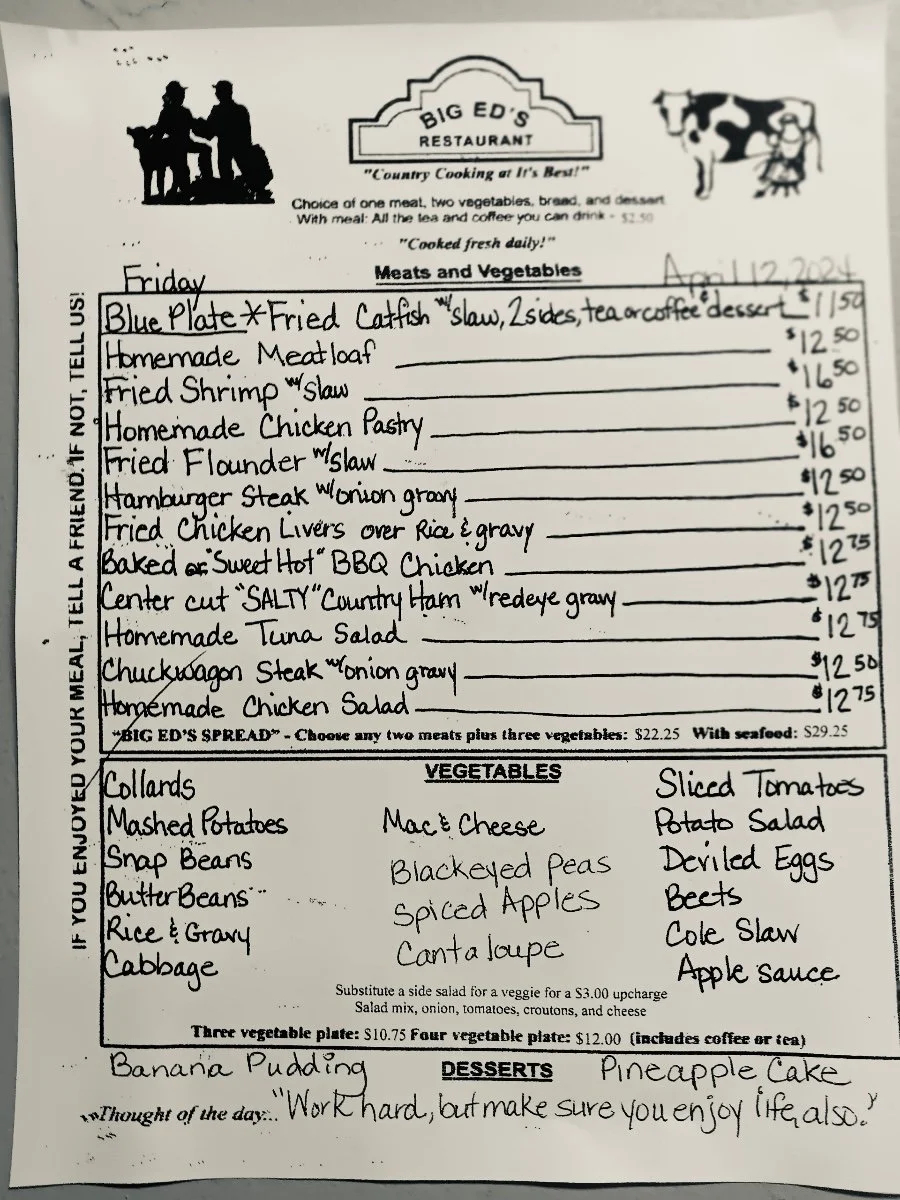 BIG ED'S
RESTAURANT
"Country Cooking at It's Best!"
Choice of one meat, two vegetables, bread, and dessert
With meal: All the tea and coffee you can drink - $2.50
"Cooked fresh daily!"
Friday
Meats and Vegetables
April 12, 2024
Blue Plate * Fried Catfish w/slaw, 2 sides, tea or coffee & dessert $11.50
Homemade Meatloaf $12.50
Fried Shrimp w/slaw $16.50
Homemade Chicken Pastry $12.50
Fried Flounder w/slaw $16.50
Hamburger Steak w/onion gravy $12.50
Fried Chicken Livers over Rice & gravy $12.50
Baked or "Sweet Hot" BBQ Chicken $12.75
Center cut "SALTY" Country Ham w/redeye gravy $12.75
Homemade Tuna Salad $12.75
Chuckwagon Steak w/onion gravy $12.50
Homemade Chicken Salad $12.75
"BIG ED'S SPREAD" - Choose any two meats plus three vegetables: $22.25 With seafood: $29.25
IF YOU ENJOYED YOUR MEAL, TELL A FRIEND. IF NOT, TELL US!
VEGETABLES
Collards
Mashed Potatoes
Snap Beans
Butter Beans
Rice & Gravy
Cabbage
Mac & Cheese
Blackeyed Peas
Spiced Apples
Cantaloupe
Sliced Tomatoes
Potato Salad
Deviled Eggs
Beets
Cole Slaw
Apple sauce
Substitute a side salad for a veggie for a $3.00 upcharge
Salad mix, onion, tomatoes, croutons, and cheese
Three vegetable plate: $10.75 Four vegetable plate: $12.00 (includes coffee or tea)
Banana Pudding
DESSERTS
Pineapple Cake
Thought of the day... "Work hard, but make sure you enjoy life, also."